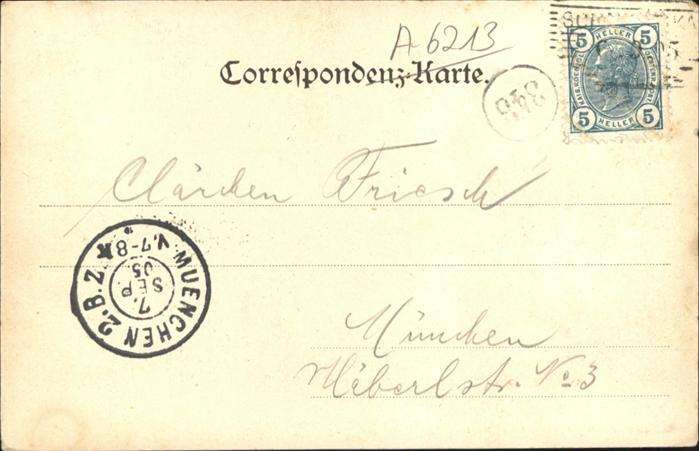 A 6213
Correspondenz-Karte.
5 HELLER 5
5 HELLER 5
Clärchen Friesch
MUENCHEN 2.B.Z.
7.
SEP
05
V.7-8
München
No. 3